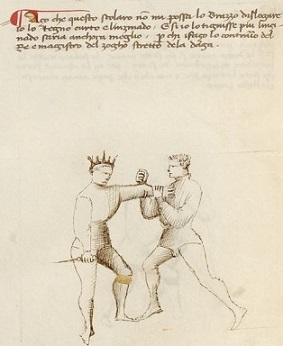 Aço che questo scolaro nō mi possa lo brazzo dislogare
io lo tegno curto e linzinado. E si io lo tignisse piu linçi-
nado saria anchora meglio. p chi ifaço lo contrario del
Re e magistro del zogho stretto dela daga.